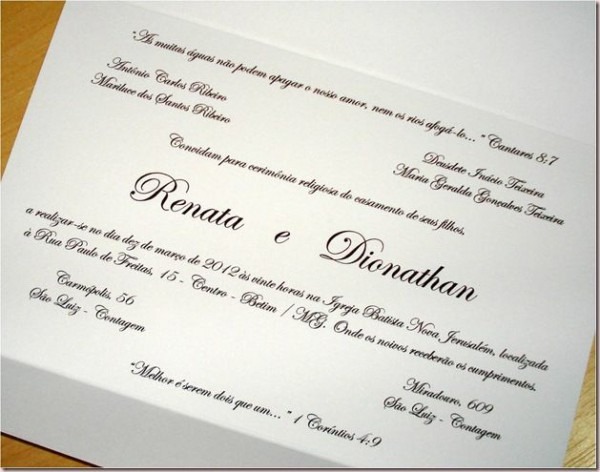 "As muitas águas não podem apagar o nosso amor, nem os rios afogá-lo... " Cantares 8:7
Antônio Carlos Ribeiro
Mariluce dos Santos Ribeiro
Deusdete Inácio Teixeira
Maria Geralda Gonçalves Teixeira
Convidam para cerimônia religiosa do casamento de seus filhos,
Renata e Dionathan
a realizar-se no dia dez de março de 2012 às vinte horas na Igreja Batista Nova Jerusalém, localizada
à Rua Paulo de Freitas, 15 - Centro - Betim / MG. Onde os noivos receberão os cumprimentos.
Carmópolis, 56
São Luiz - Contagem
Miradouro, 609
São Luiz - Contagem
"Melhor é serem dois que um... " 1 Coríntios 4:9